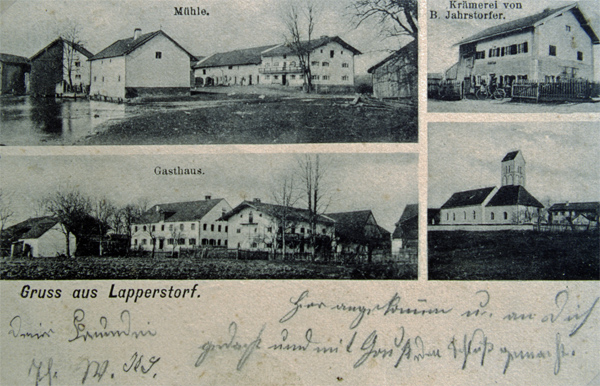 Mühle.
Krämerei von
B. Jahrstorfer.
Gasthaus.
Gruss aus Lapperstorf.
Hier angekommen u. an Dich
gedacht und mit Gruß den Schluß gemacht.